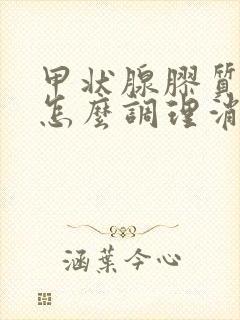 甲状腺膠質
怎麼調理消
涵葉今心